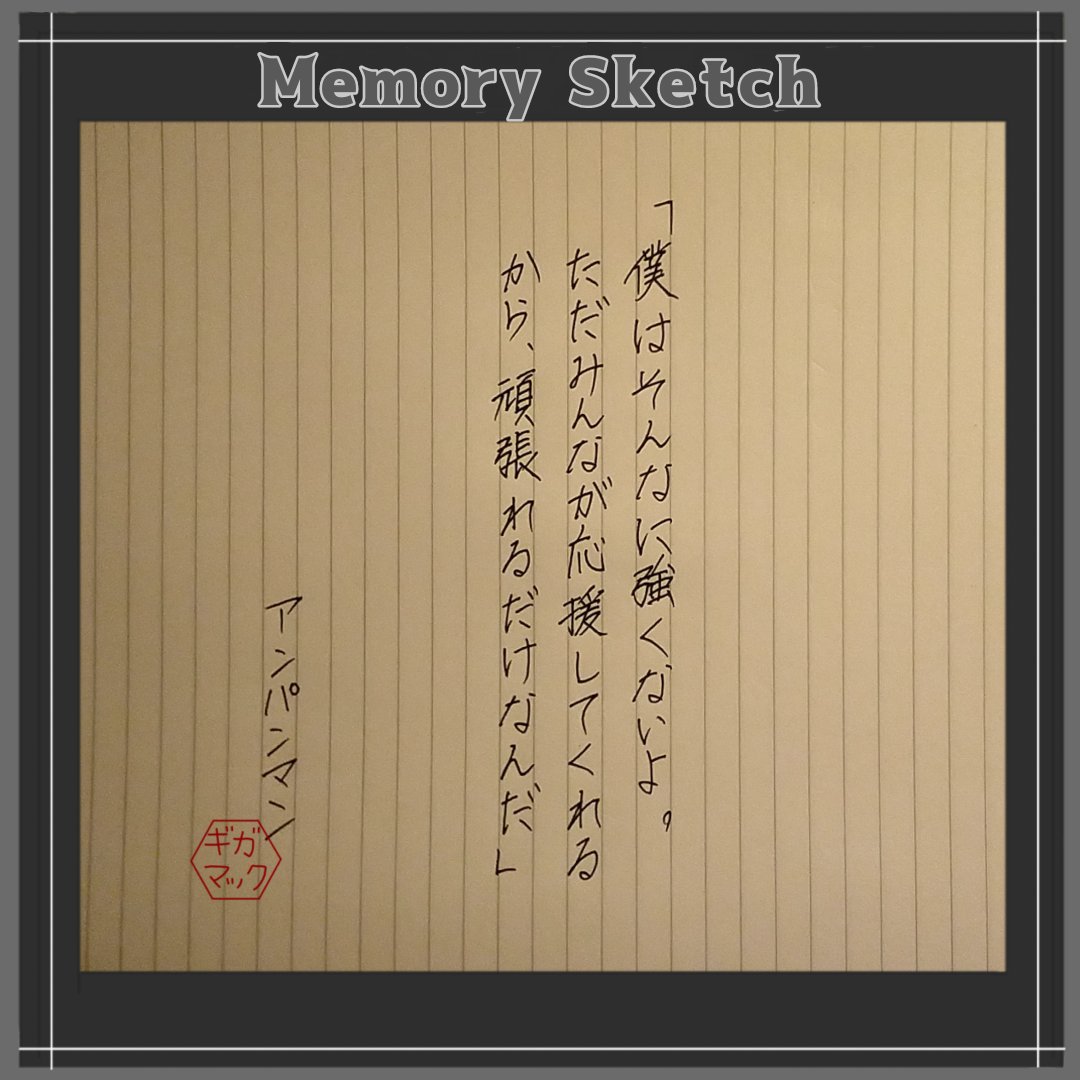 Memory Sketch
「僕はそんなに強くないよ。
ただみんなが応援してくれる
から、頑張れるだけなんだ」
アンパンマン
ギガ
マック